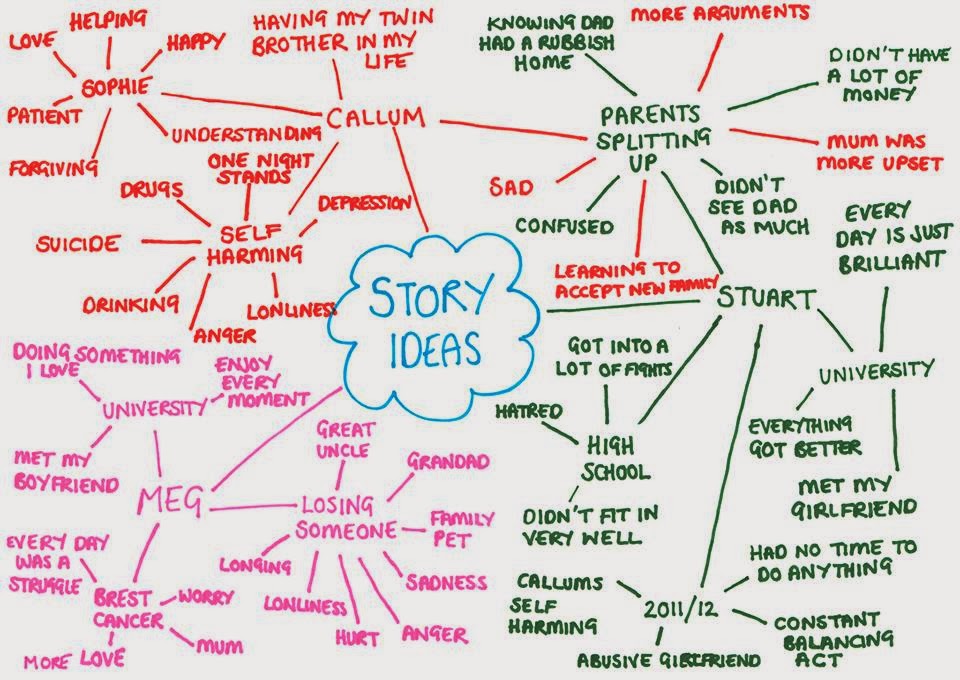 HELPING
LOVE
HAPPY
SOPHIE
PATIENT
FORGIVING
UNDERSTANDING
HAVING MY TWIN
BROTHER IN MY
LIFE
CALLUM
ONE NIGHT
STANDS
DRUGS
DEPRESSION
SUICIDE
SELF
HARMING
DRINKING
LONLINESS
ANGER
KNOWING DAD
HAD A RUBBISH
HOME
MORE ARGUMENTS
DIDN'T HAVE
A LOT OF
MONEY
PARENTS
SPLITTING
UP
MUM WAS
MORE UPSET
SAD
CONFUSED
DIDN'T
SEE DAD
AS MUCH
LEARNING TO
ACCEPT NEW FAMILY
STORY
IDEAS
STUART
EVERY
DAY IS JUST
BRILLIANT
UNIVERSITY
EVERYTHING
GOT BETTER
MET MY
GIRLFRIEND
GOT INTO A
LOT OF FIGHTS
HATRED
HIGH
SCHOOL
DIDN'T FIT IN
VERY WELL
HAD NO TIME TO
DO ANYTHING
CALLUMS
SELF
HARMING
2011/12
CONSTANT
BALANCING
ACT
ABUSIVE GIRLFRIEND
DOING SOMETHING
I LOVE
ENJOY
EVERY
MOMENT
UNIVERSITY
MET MY
BOYFRIEND
MEG
GREAT
UNCLE
GRANDAD
LOSING
SOMEONE
FAMILY
PET
LONGING
SADNESS
LONLINESS
HURT
ANGER
EVERY DAY
WAS A
STRUGGLE
BREST
CANCER
WORRY
MUM
MORE LOVE